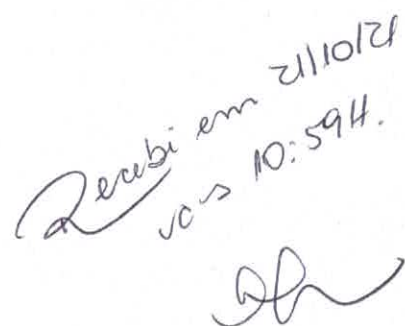 Recebi em 21/10/21
às 10:59H.